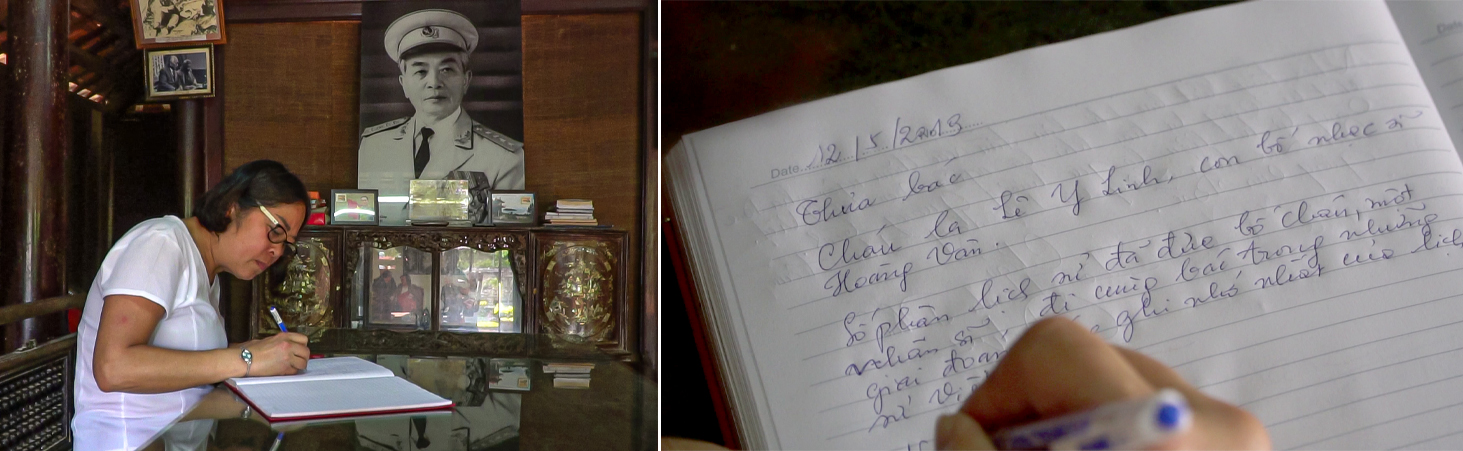 Date 12/5/2019
Thưa bác
Cháu là Lê Y Linh, con bố nhạc sĩ
Hoàng Vân.
Số phận lịch sử đã đưa bố cháu, một
nhân sĩ, đi cùng bác trong những
giai đoạn ghi nhớ nhất của lịch
sử Việt
Date